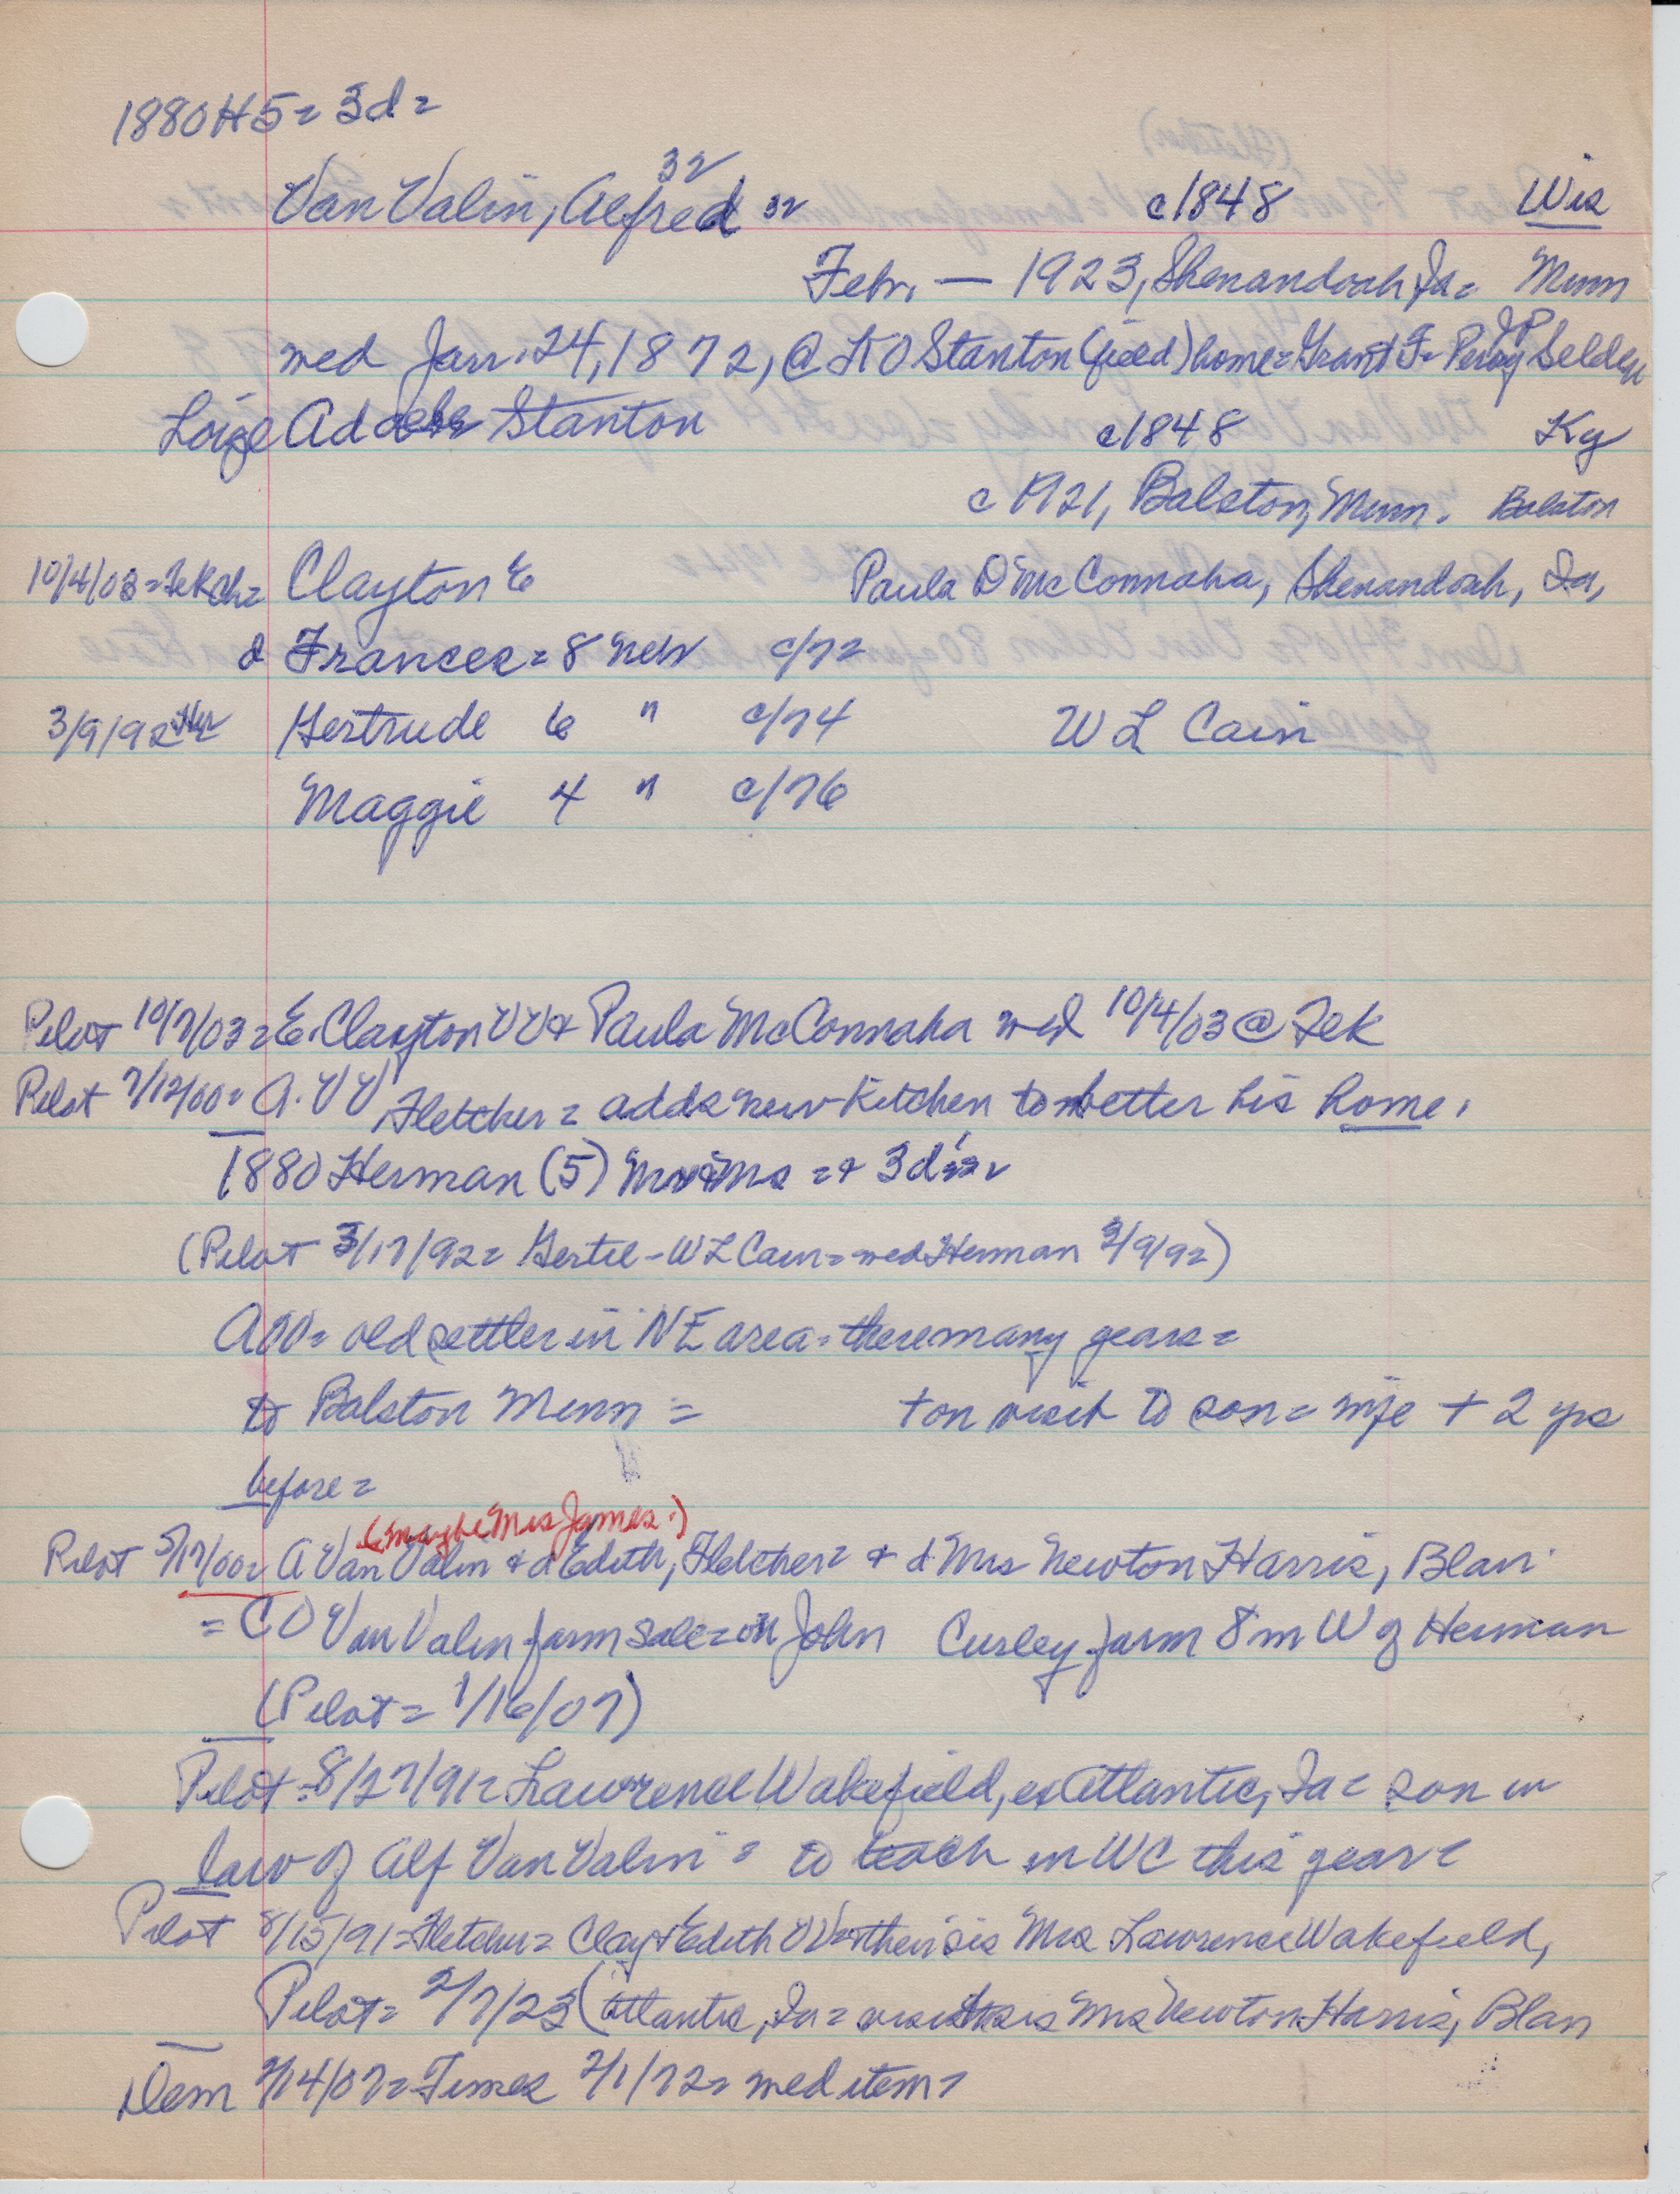 1880 H5 = 3d =
32
Van Valin, Alfred 32 c1848 Wis
Febr. — 1923, Shenandoah Ia = Minn
JP
med Jan. 24, 1872, @ LO Stanton (field) home = Grant F = Percy Selden
Loize Stanton c1848 Ky
c 1921, Balston, Minn. Balston
10/4/03 = TekCh = Clayton E Paula D McConnaha, Shenandoah, Ia,
d Frances = 8 Neb c/72
3/9/92 Her Gertrude 6 " c/74 W L Cain
Maggie 4 " c/76
Pilot 10/7/03 = E. Clayton VV & Paula McConnaha med 10/4/03 @ Tek
Pilot 7/12/00 = A. VV Fletcher = adds new kitchen to better his home.
1880 Herman (5) Mr & Mrs = + 3d's =
(Pilot 3/17/92 = Gertie - WL Cain = med Herman 3/9/92)
AVV = old settler in NE area = there many years =
to Balston Minn = + on visit to son = wife + 2 yrs
before =
(maybe Mrs James.)
Pilot 5/17/00 = A Van Valin & d Edith, Fletcher = & d Mrs Newton Harris, Blair
= C O Van Valin farm sale = on John Curley farm 8 m W of Herman
(Pilot = 1/16/07)
Pilot = 8/27/91 = Lawrence Wakefield, ex Atlantic, Ia = son in
law of Alf Van Valin = to teach in WC this year =
Pilot 8/15/91 = Fletcher = Clay & Edith VV & their sis Mrs Lawrence Wakefield,
Pilot = 2/7/23 (Atlantic, Ia = sis Mrs Newton Harris, Blair
Dem 2/14/07 = Times 2/1/72 = med item =